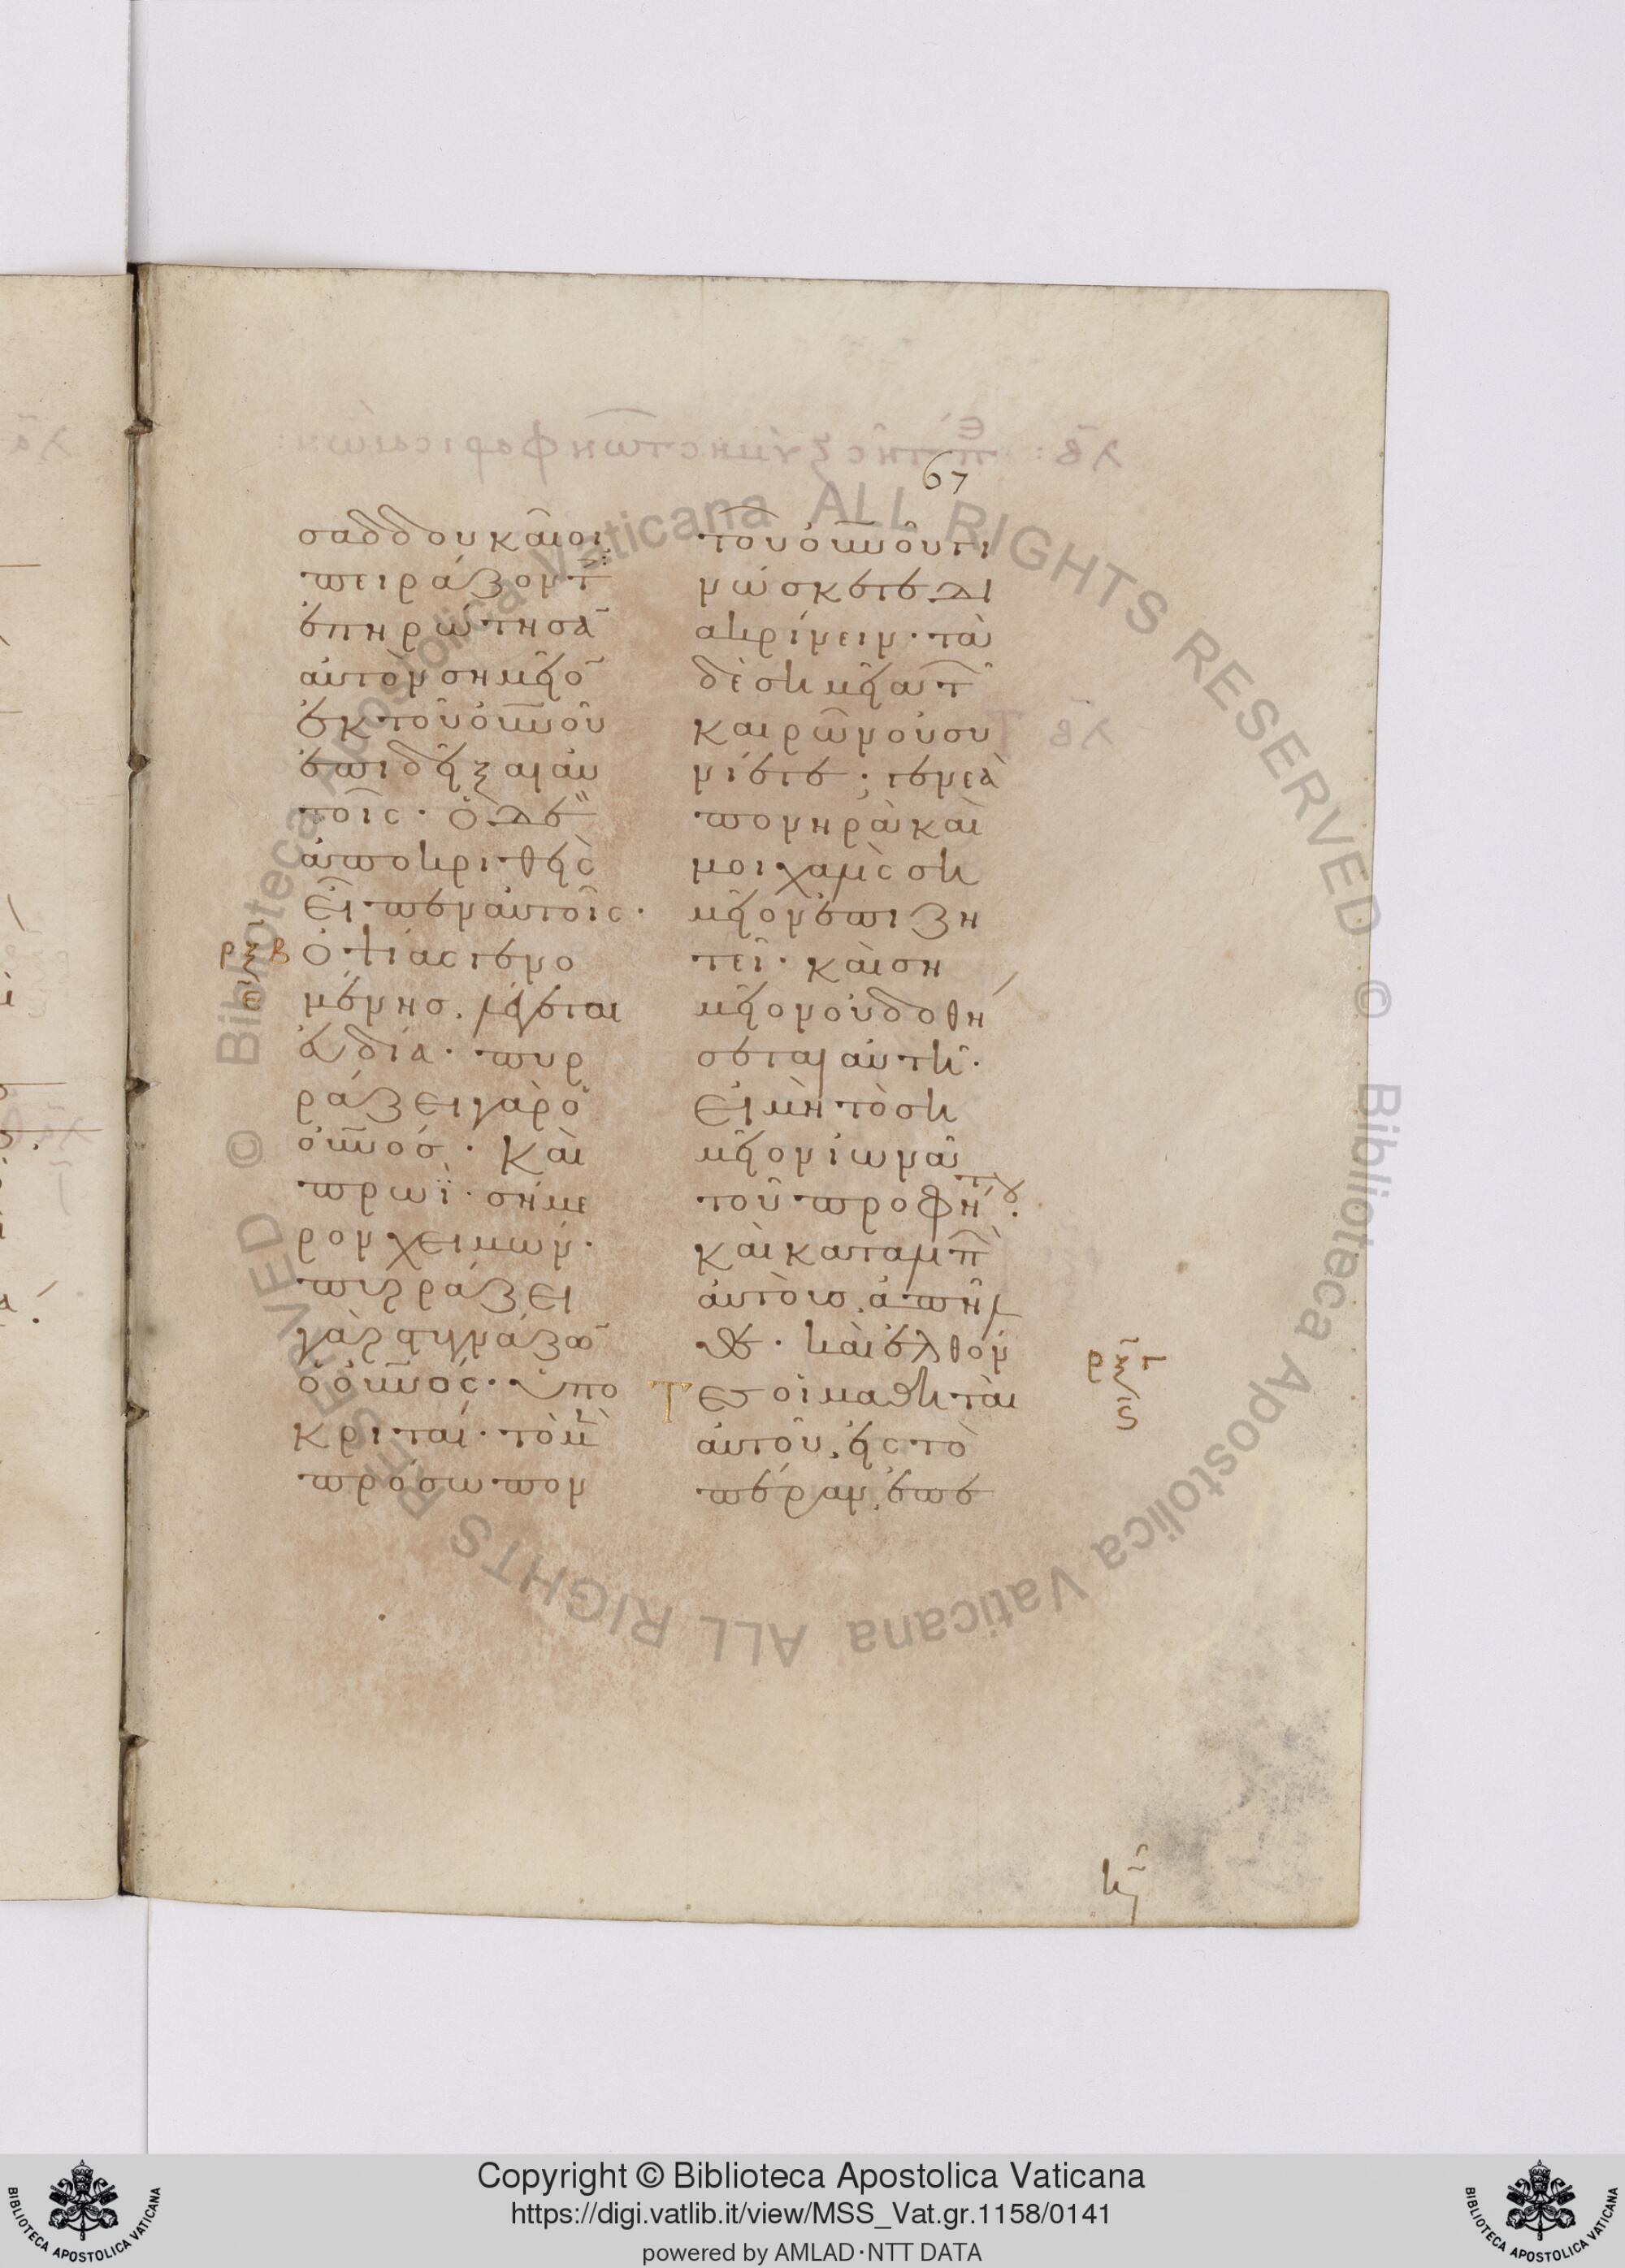 67
σαδδουκαῖοι
πειράζοντ
ἐπηρώτησα̅
αὐτὸν σημεῖο̅
ἐκ τοῦ οὐ̅νοῦ
ἐπιδεῖξαι αὐ
τοῖς· ὁ δὲ
ἀποκριθεὶς
εἶπεν αὐτοῖς·
ρξβ ὀψίας γενο
μένης, λέγεται
εὐδία· πυρ
ράζει γὰρ ὁ
οὐ̅νός· καὶ
πρωΐ· σήμε
ρον χειμών·
πυρράζει
γὰρ στυγνάζω̅
ὁ οὐ̅νός· ὑπο
κριταί· τὸ μὲ̅
πρόσωπον
τοῦ οὐ̅νοῦ γι
νώσκετε δι
ακρίνειν· τὰ
δὲ σημεῖα τ
καιρῶν οὐ συ
νίετε; γενεὰ
πονηρὰ καὶ
μοιχαλὶς ση
μεῖον ἐπιζη
τεῖ· καὶ ση
μεῖον οὐ δοθή
σεται αὐτῇ·
εἰ μὴ τὸ ση
μεῖον ἰωνᾶ
τοῦ προφήτου·
καὶ καταλιπ
αὐτούς, ἀπῆλ
θε· καὶ ἐλθόν
τες οἱ μαθηταὶ
ρξγ
ς
αὐτοῦ, εἰς τὸ
πέραν, ἐπε
Copyright © Biblioteca Apostolica Vaticana
https://digi.vatlib.it/view/MSS_Vat.gr.1158/0141
powered by AMLAD·NTT DATA
BIBLIOTECA APOSTOLICA VATICANA
BIBLIOTECA APOSTOLICA VATICANA
© Biblioteca Apostolica Vaticana ALL RIGHTS RESERVED
© Biblioteca Apostolica Vaticana ALL RIGHTS RESERVED